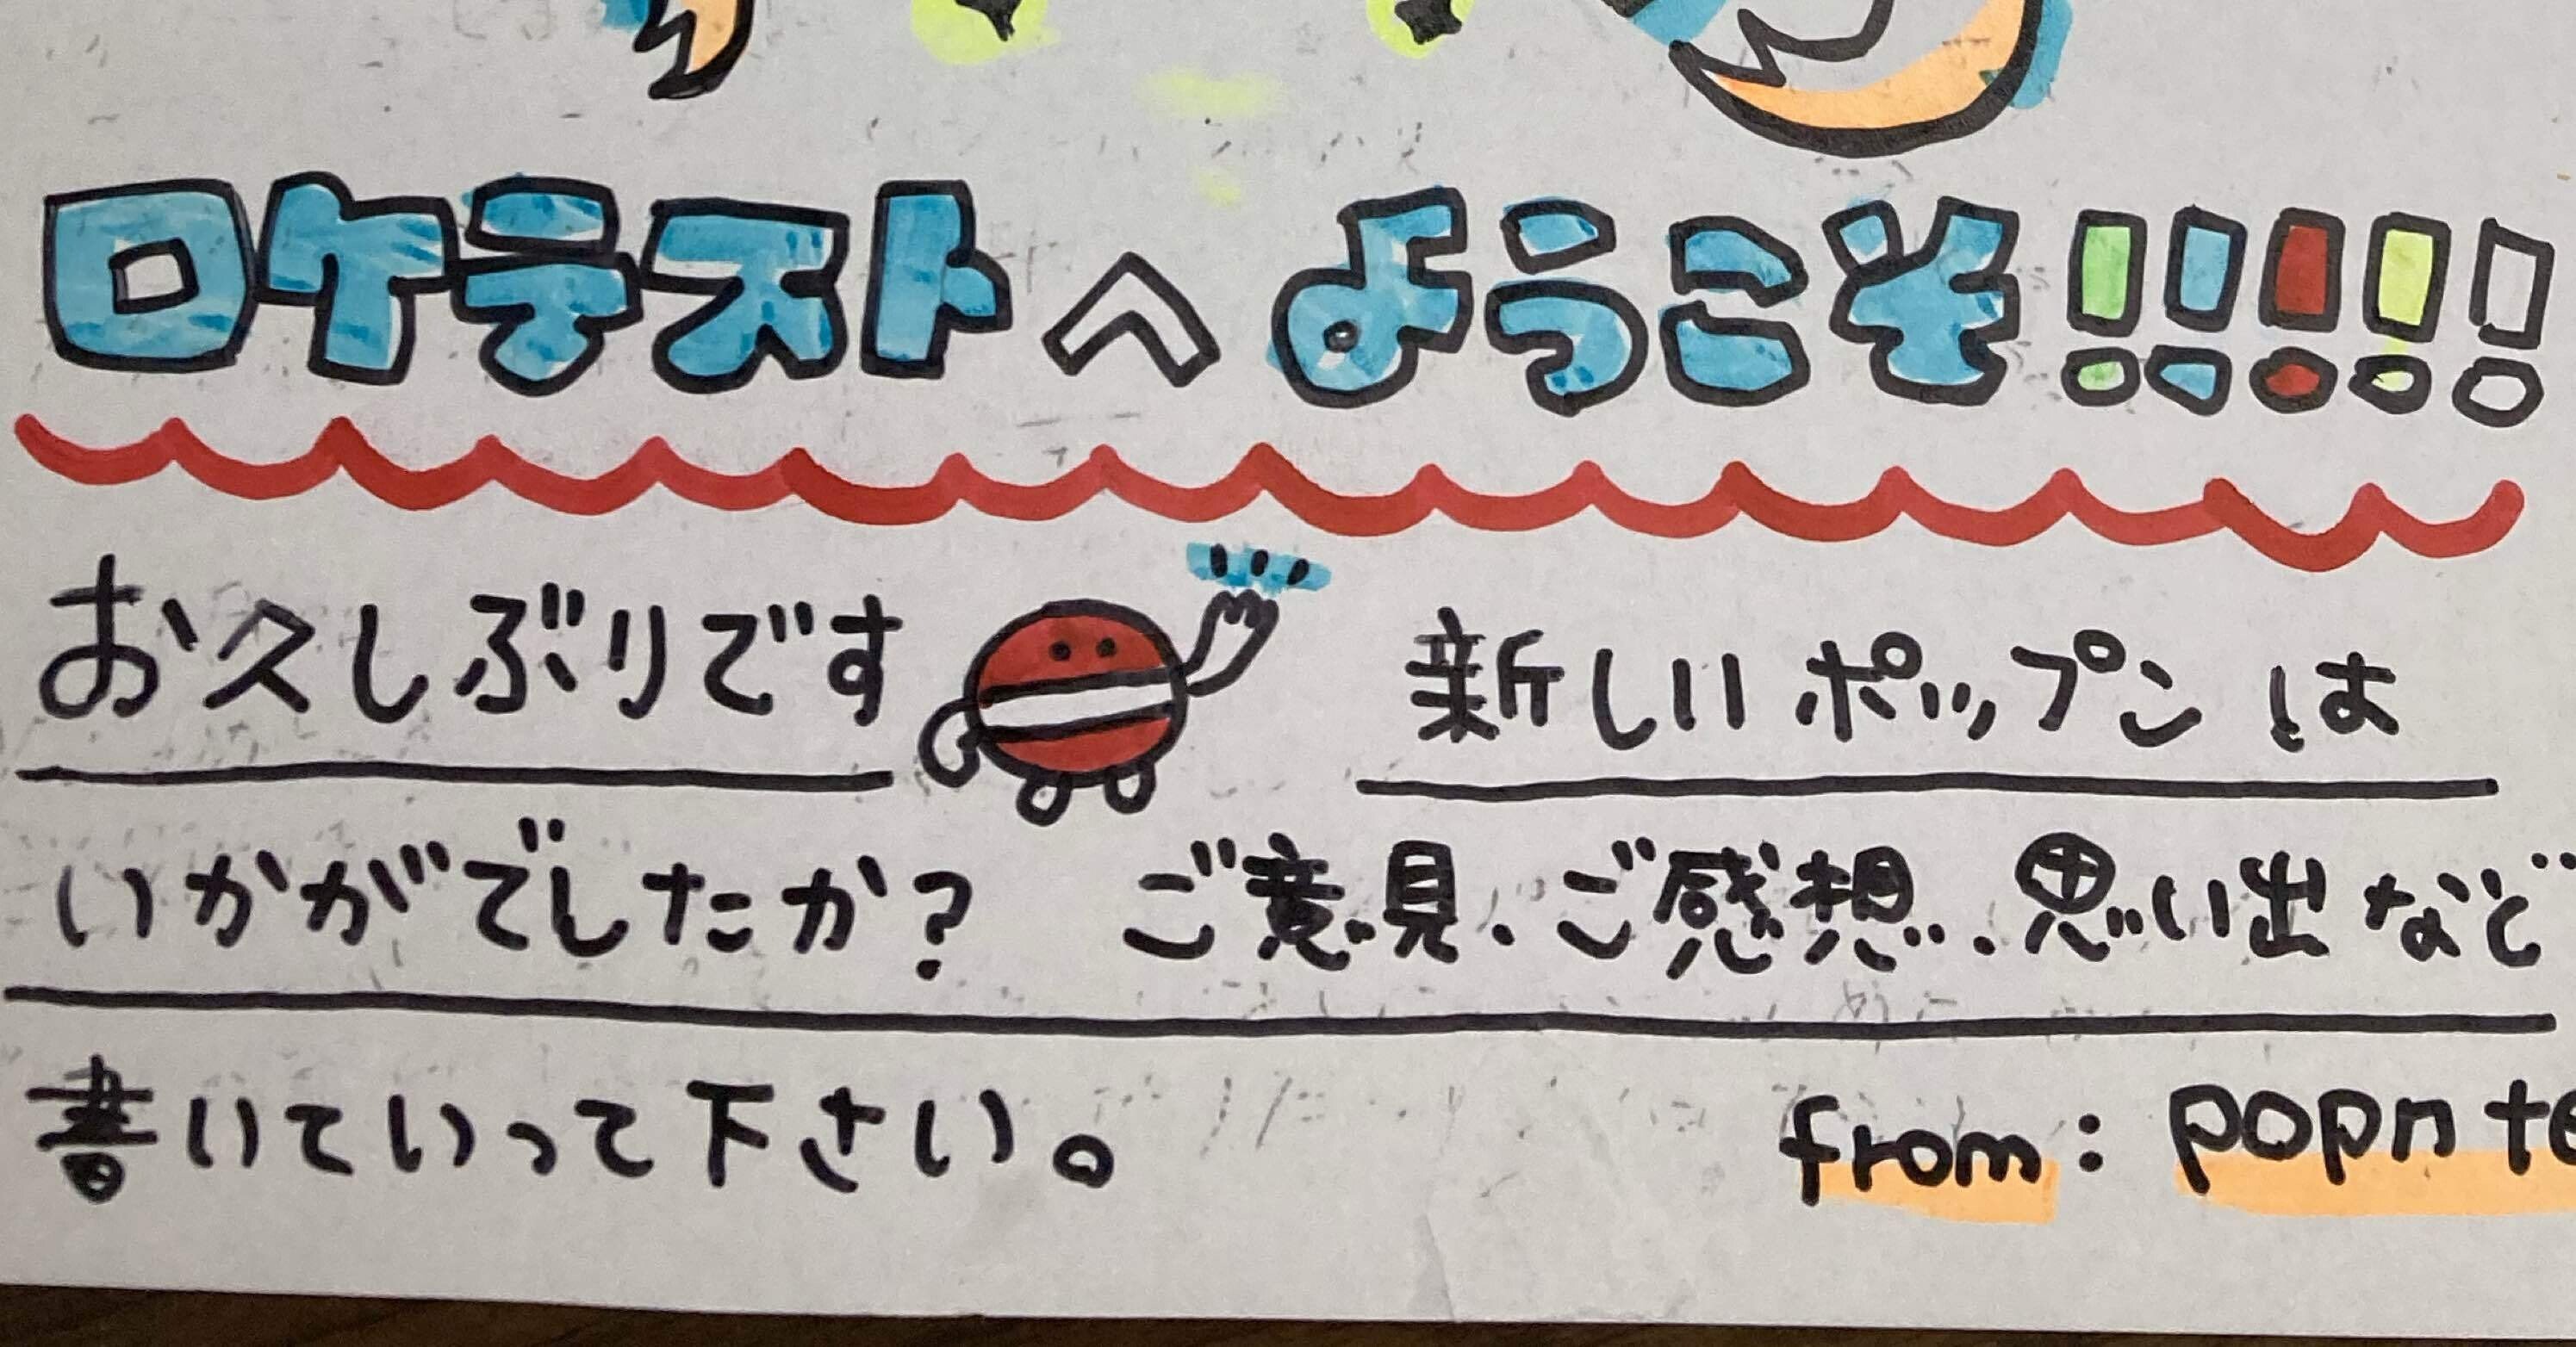 ロケテストへようこそ!!!!!
お久しぶりです 新しいポップンは
いかがでしたか? ご意見、ご感想、思い出など
書いていって下さい。 from: popn te